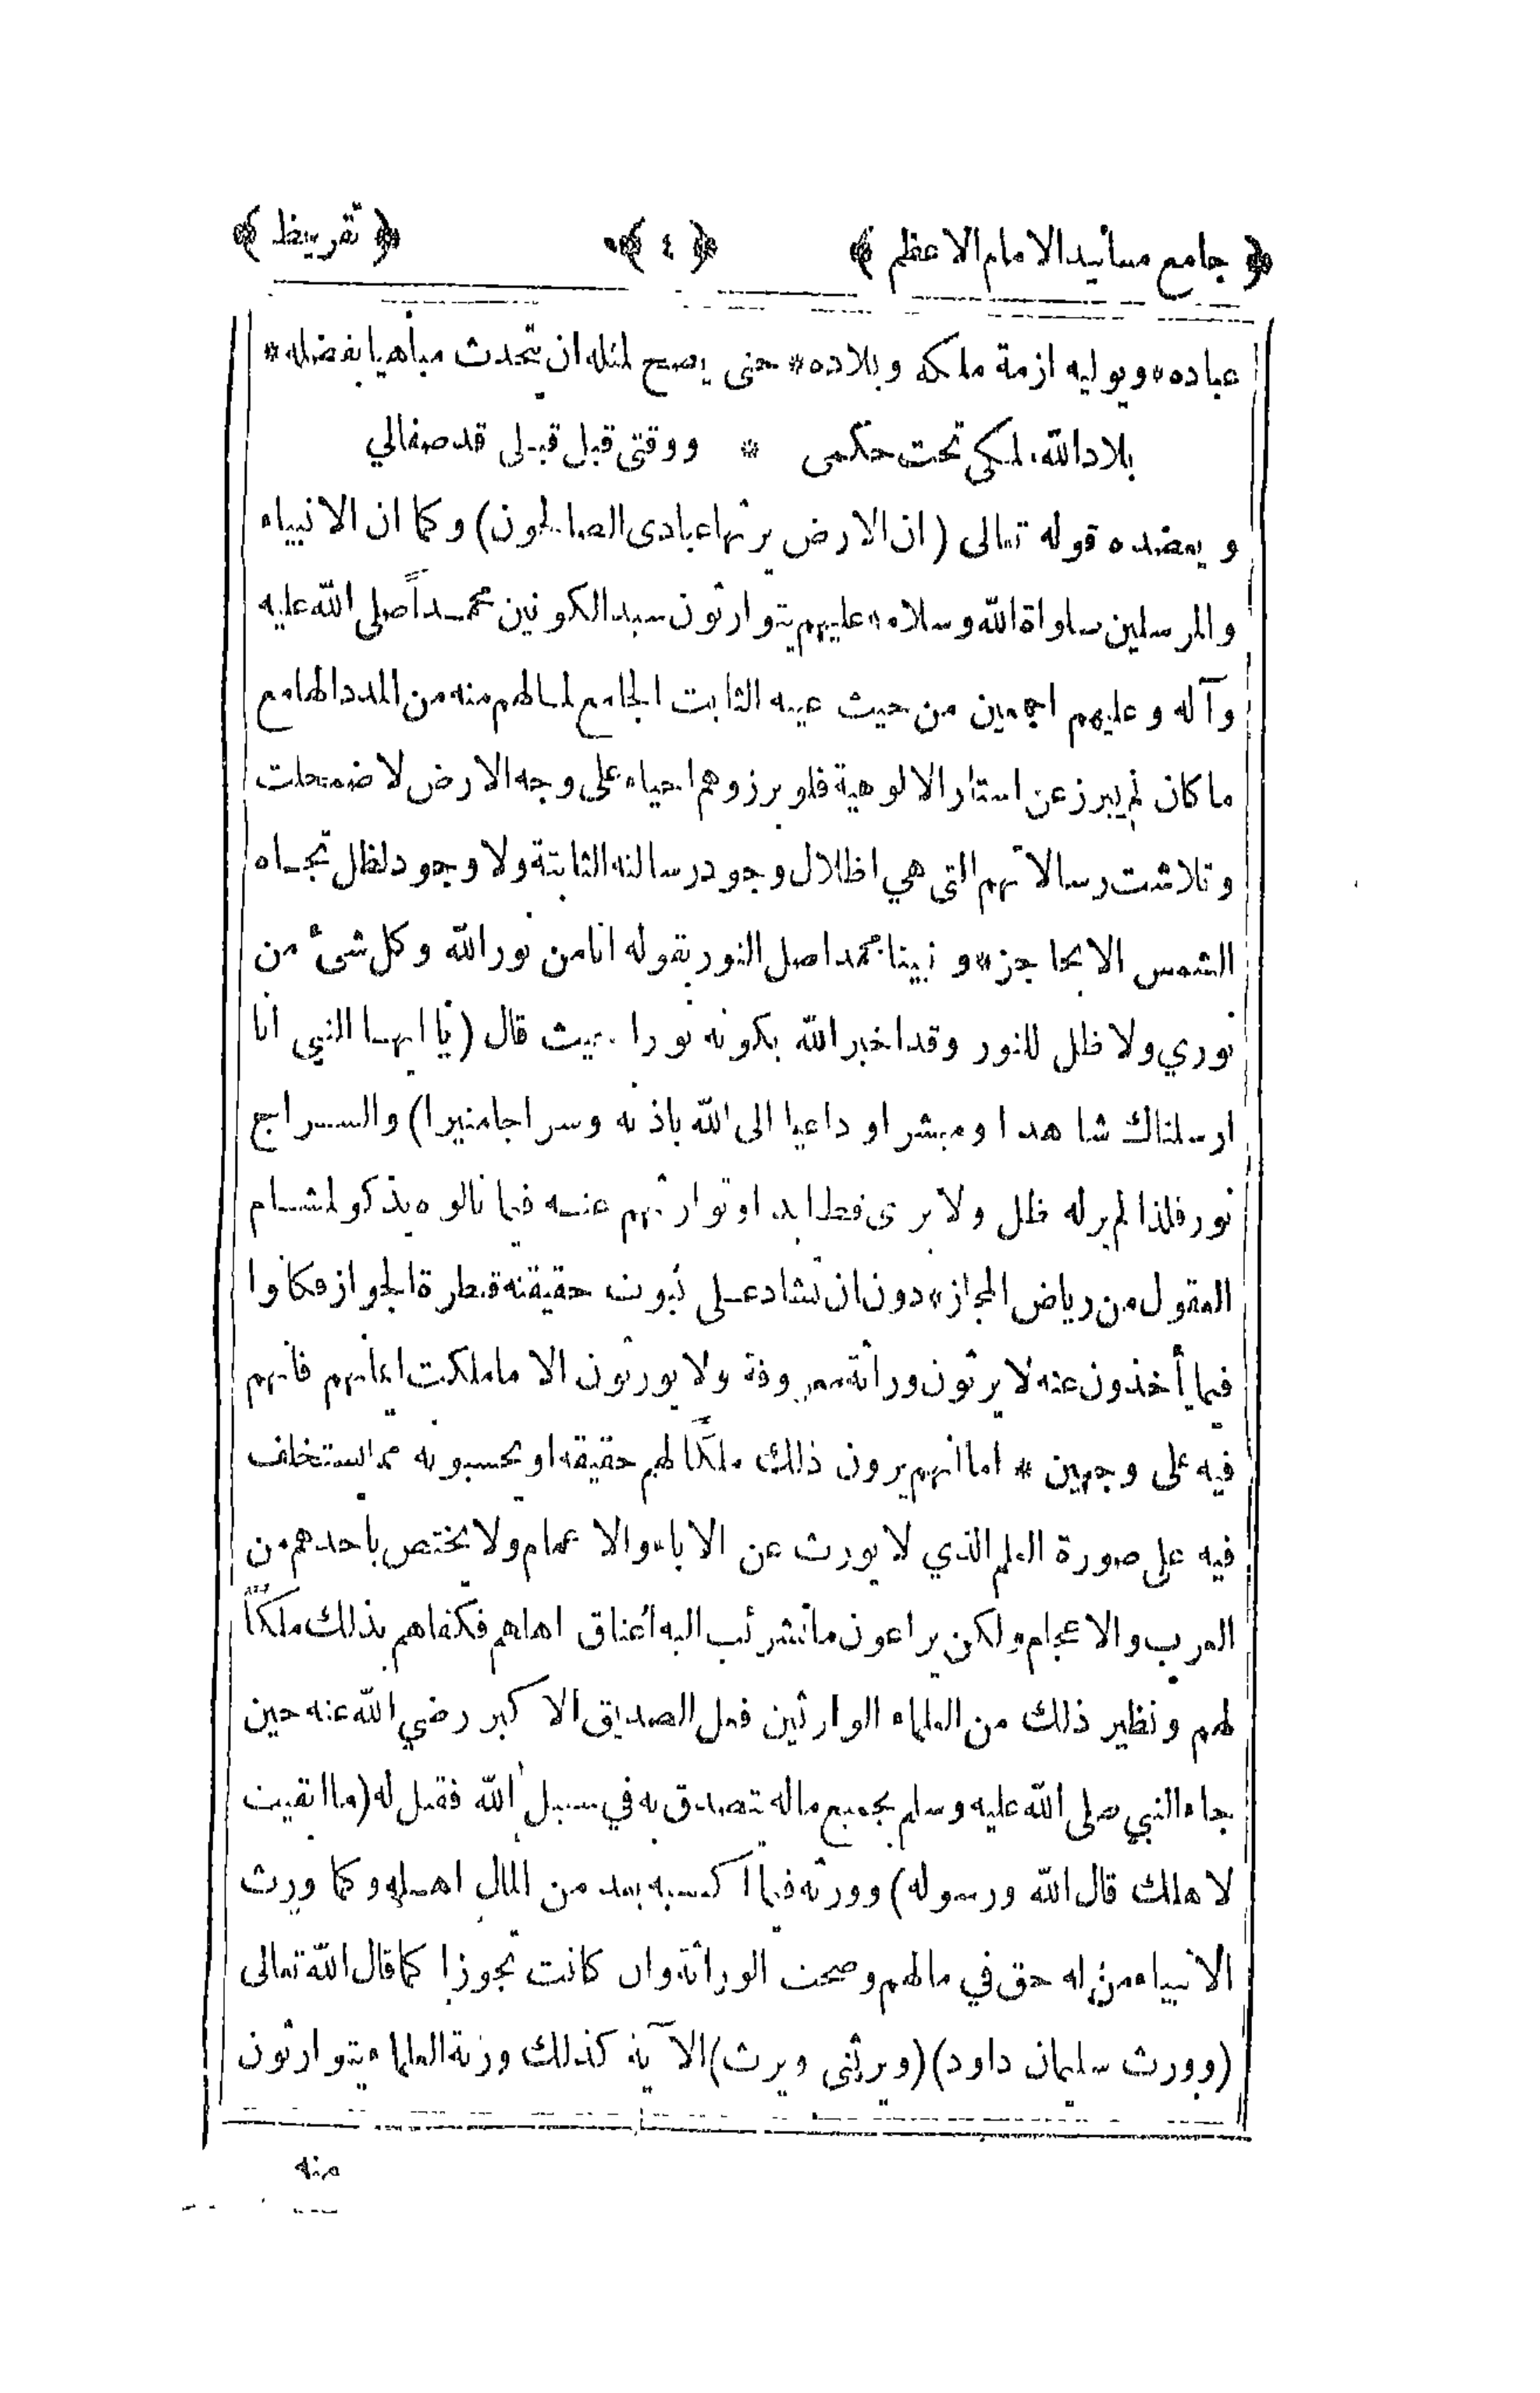 ﴿ جامع مسانيد الامام الاعظم ﴾ ﴿ ٤ ﴾ ﴿ تقريظ ﴾
عباده * ويوليه ازمة ملكه وبلاده * حتى يصح لمثله ان يتحدث مباهيا بفضله *
بلاد الله ملكي تحت حكمى * ووقتى قبل قبلى قد صفالي
ويعضده قوله تعالى ( ان الارض يرثها عبادى الصالحون ) وكما ان الانبياء
والمرسلين صلواة الله وسلامه عليهم يتوارثون سيد الكونين محمداً صلى الله عليه
وآله وعليهم اجمعين من حيث عينه الثابت الجامع لما لهم منه من المدد الهامع
ما كان لم يبرز عن استار الالوهية فلو برزوهم احياء على وجه الارض لاضمحلت
وتلاشت رسالاتهم التى هي اظلال وجود رسالته الثابتة ولا وجود لظل تجاه
الشمس الا بحاجز * و نبينا محمد اصل النور بقوله انا من نور الله وكل شئ من
نوري ولا ظل للنور وقد اخبر الله بكونه نورا حيث قال ( يا ايها النبي انا
ارسلناك شاهدا ومبشرا وداعيا الى الله باذنه وسراجا منيرا ) والسراج
نور فلذا لم ير له ظل ولا يرى قط ابدا وتوارثهم عنه فيما نالوه يذكو لمشام
العقول من رياض المجاز * دون ان تشاد على ثبوت حقيقته قطرة الجواز فكانوا
فيما يأخذون عنه لا يرثون وراثة معروفة ولا يورثون الا ما ملكت ايمانهم فانهم
فيه على وجهين * اما انهم يرون ذلك ملكًا لهم حقيقة او يحسبونه مما استخلف
فيه على صورة العلم الذي لا يورث عن الاباء والاعمام ولا يختص باحدهم من
العرب والاعجام ولكن يراعون ما تشرئب اليه اعناق اهلهم فكفاهم بذلك ملكًا
لهم ونظير ذلك من العلماء الوارثين فعل الصديق الاكبر رضي الله عنه حين
جاء النبي صلى الله عليه وسلم بجميع ماله تصدق به في سبيل الله فقيل له ( ما ابقيت
لاهلك قال الله ورسوله ) وورثه فيما اكسبه بعد من المال اهله وكما ورث
الانبياء من له حق في مالهم وصحت الوراثة وان كانت تجوزا كما قال الله تعالى
( وورث سليمان داود ) ( ويرثنى ويرث ) الآية كذلك ورثة العلماء يتوارثون
منه